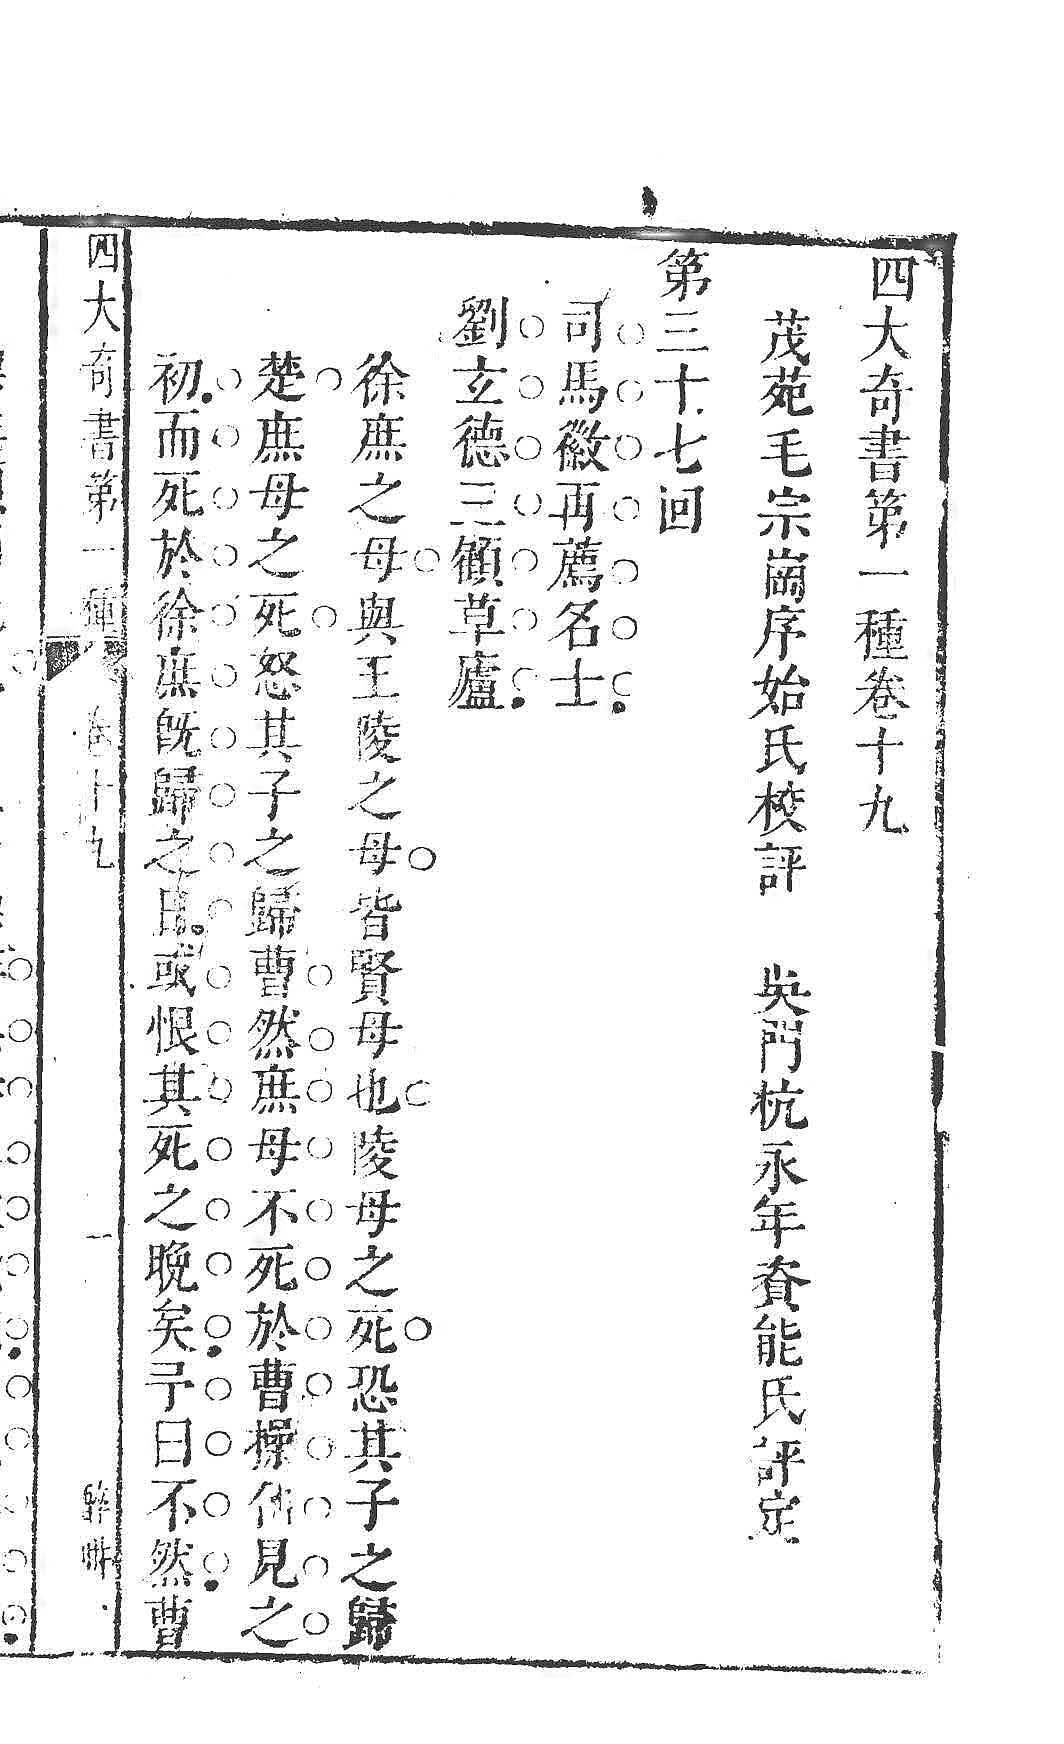 四大奇書第一種卷十九
茂苑毛宗崗序始氏校評　吳門杭永年資能氏評定
第三十七回
司馬徽再薦名士
劉玄德三顧草廬
徐庶之母與王陵之母皆賢母也陵母之死恐其子之歸
楚庶母之死怒其子之歸曹然庶母不死於曹操僞見之
初而死於徐庶旣歸之日或恨其死之晚矣予曰不然曹
四大奇書第一種　卷十九　一